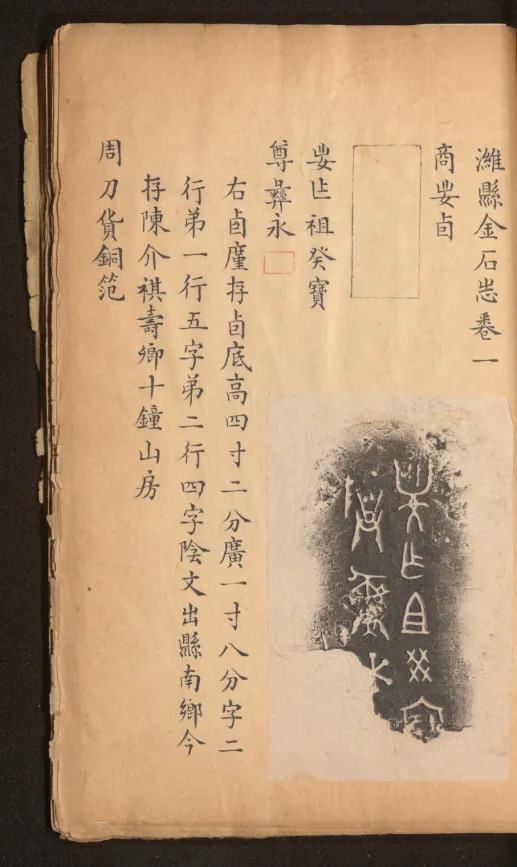 濰縣金石志卷一
商婁卣
婁𠂇祖癸寶
尊彝永
右卣廑存卣底高四寸二分廣一寸八分字二
行弟一行五字弟二行四字陰文出縣南鄉今
存陳介祺壽卿十鐘山房
周刀貨銅笵